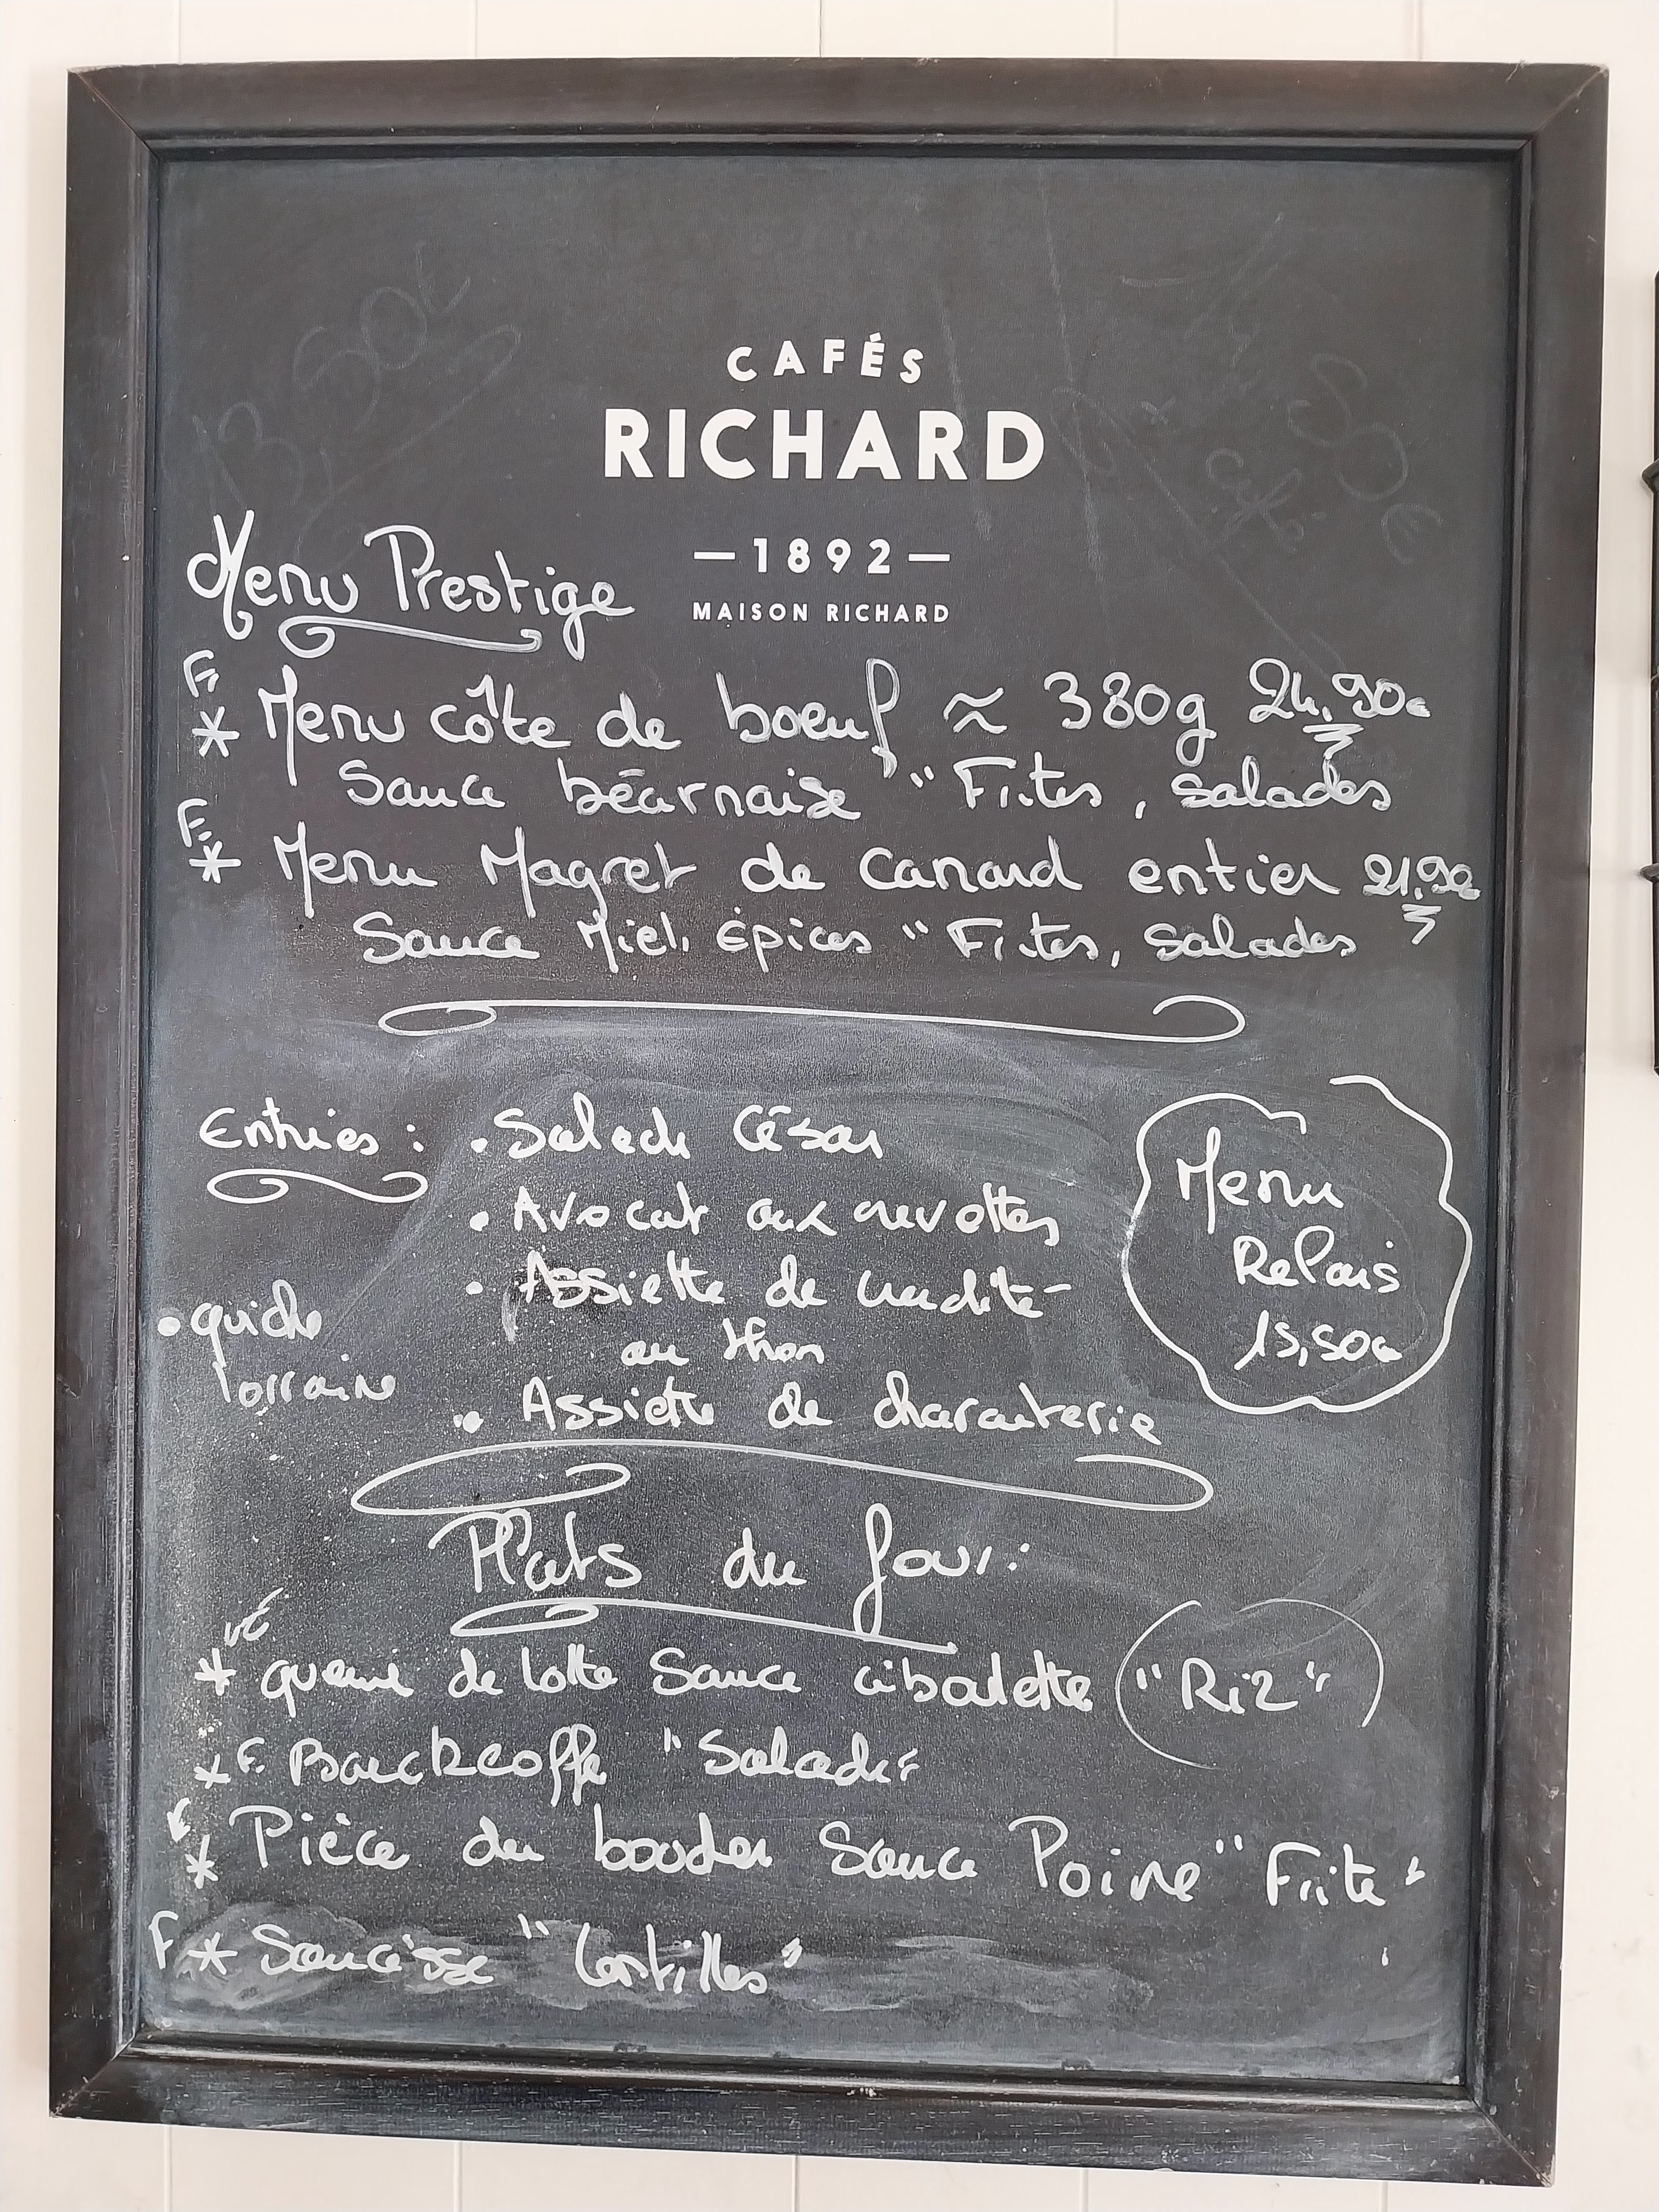 CAFÉS
RICHARD
—1892—
MAISON RICHARD
Menu Prestige
F
* Menu côte de boeuf ≈ 380g 24,90€
Sauce béarnaise "Frites, salades
F
* Menu Magret de canard entier 21,90€
Sauce Miel, épices "Frites, salades"
Entrées : • Salade César
• Avocat aux crevettes
• Assiette de crudité
au thon
• quiche
lorraine
• Assiette de charcuterie
Menu
Relais
15,50€
Plats du jour:
VÉ
* queue de lotte Sauce ciboulette "Riz"
* F. Baeckeoffe "Salade"
* Pièce du boucher Sauce Poivre "Frite"
F * Saucisse "lentilles"